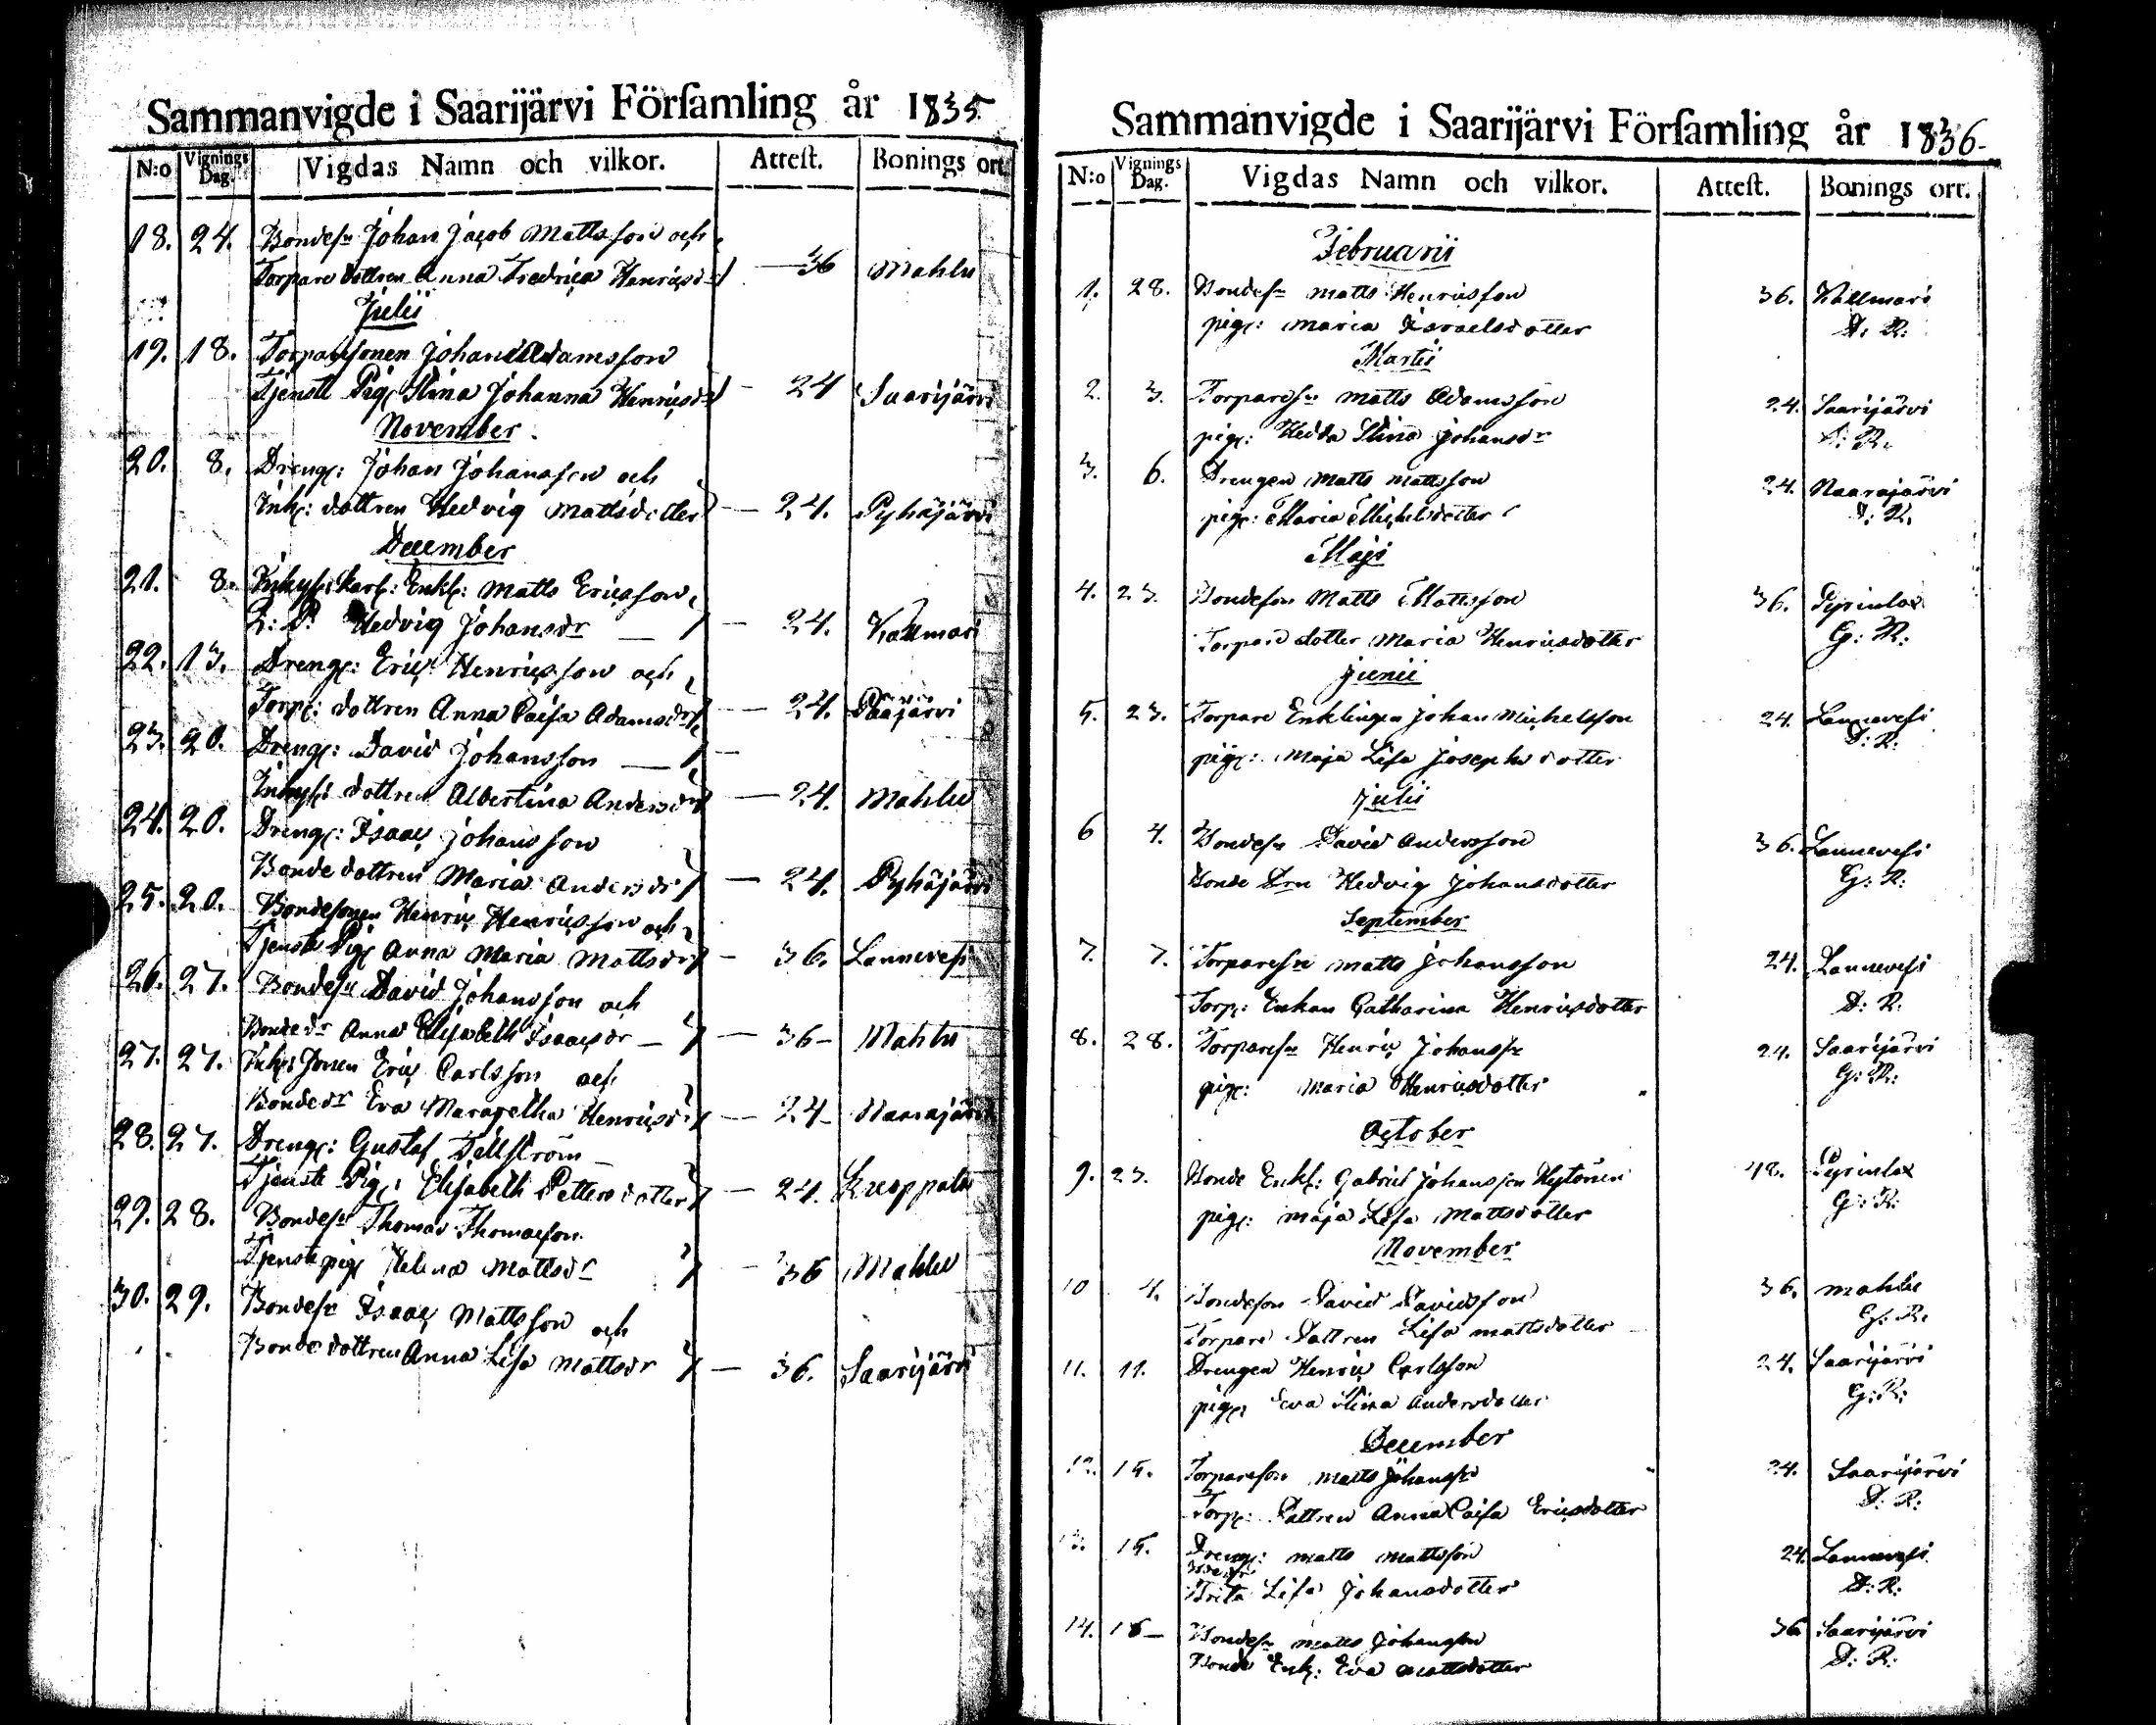 Sammanvigde i Saarijärvi Församling år 1835.
N:o Vignings Dag. Vigdas Namn och vilkor. Attest. Bonings ort.
18. 24. Bondesn Johan Jacob Mattsson och
Torpare dottren Anna Fredrica Henricsdr — 36 Mahlu
Julii
19. 18. Torparesonen Johan Adamsson
Tjenste Pig: Stina Johanna Henricsdr — 24 Saarijärvi
November.
20. 8. Dreng: Johan Johansson och
Inh: dottren Hedvig Mattsdotter — 24. Pyhäjärvi
December
21. 8. Inhys: karl: Enkl: Matts Ericsson,
Q: P: Hedvig Johansdr — 24. Kallmari
22. 13. Dreng: Eric Henricsson och
Torp: dottren Anna Caisa Adamsdr — 24. Pääjärvi
23. 20. Dreng: David Johansson —
Inhys: dottren Albertina Andersdr — 24. Mahlu
24. 20. Dreng: Isaac Johansson
Bonde dottren Maria Andersdr — 24. Pyhäjärvi
25. 20. Bondesonen Henric Henricsson och
Tjenste Pig Anna Maria Mattsdr — 36. Lannevesi
26. 27. Bondesn David Johansson och
Bonde dr Anna Elisabeth Isaacsdr — 36 — Mahlu
27. 27. Inh: Sonen Eric Carlsson och
Bonde dr Eva Margretha Henricsdr — 24 — Naarajärvi
28. 27. Dreng: Gustaf Tällström
Tjenste Pig: Elisabeth Pettersdotter — 24. Kneoppala
29. 28. Bondesn Thomas Thomasson
Tjenste pig Helena Mattsdr — 36 Mahlu
30. 29. Bondesn Isaac Mattsson och
Bonde dottren Anna Lisa Mattsdr — 36. Saarijärvi
Sammanvigde i Saarijärvi Församling år 1836.
N:o Vignings Dag. Vigdas Namn och vilkor. Attest. Bonings ort.
Februarii
1. 28. Bondesn Matts Henricsson 36. Kallmari
pig: Maria Israelsdotter D: R:
Martii
2. 3. Torparesn Matts Adamsson 24. Saarijärvi
pig: Hedda Stina Johansdr D: R:
3. 6. Drengen Matts Mattsson 24. Naarajärvi
pig: Maria Michelsdotter D: R:
Maji
4. 23. Bondeson Matts Mattsson 36. Pyrinlax
Torpare dotter Maria Henricsdotter G: R:
Junii
5. 23. Torpare Enklingen Johan Michelsson 24. Lannevesi
pig: Maja Lisa Josephsdotter D: R:
Julii
6 4. Bondesn David Andersson 36. Lannevesi
Bonde Drn Hedvig Johansdotter G: R:
September
7. 7. Torparesn Matts Johansson 24. Lannevesi
Torp: Enkan Catharina Henricsdotter D: R:
8. 28. Torparesn Henric Johanssn 24. Saarijärvi
pig: Maria Henricsdotter G: R:
October
9. 23. Bonde Enkl: Gabriel Johansson Hytönen 48. Pyrinlax
pig: Maja Lisa Mattsdotter G: R:
November
10 4. Bondeson David Davidsson 36. Mahlu
Torpare Dottren Lisa Mattsdotter G: R.
11. 11. Drengen Henric Carlsson 24. Saarijärvi
pig: Eva Stina Andersdotter G: R:
December
12. 15. Torpareson Matts Johanssn 24. Saarijärvi
Torp: Dottren Anna Caisa Ericsdotter D: R:
13. 15. Dreng: Matts Mattsson 24. Lannevesi
Brita Lisa Johansdotter D: R:
14. 16 — Bondesn Matts Johansson 36 Saarijärvi
Bonde Enk: Eva Mattsdotter D: R: